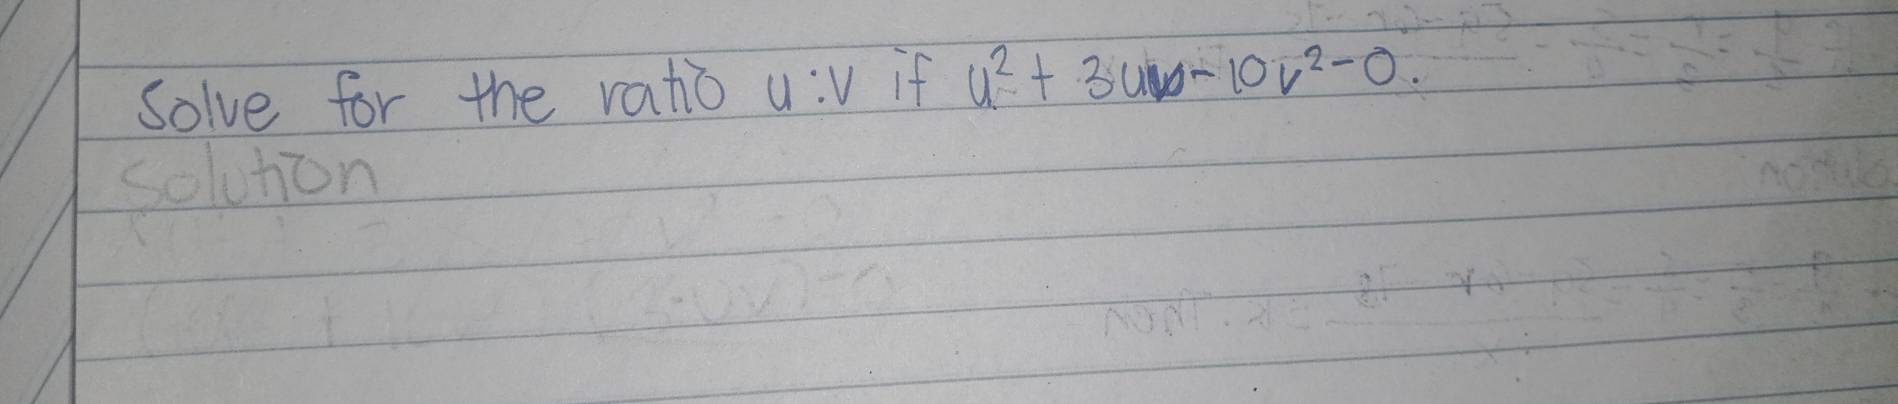 Solve for the ratio u:v if u² + 3uv-10v²-0.
Solution